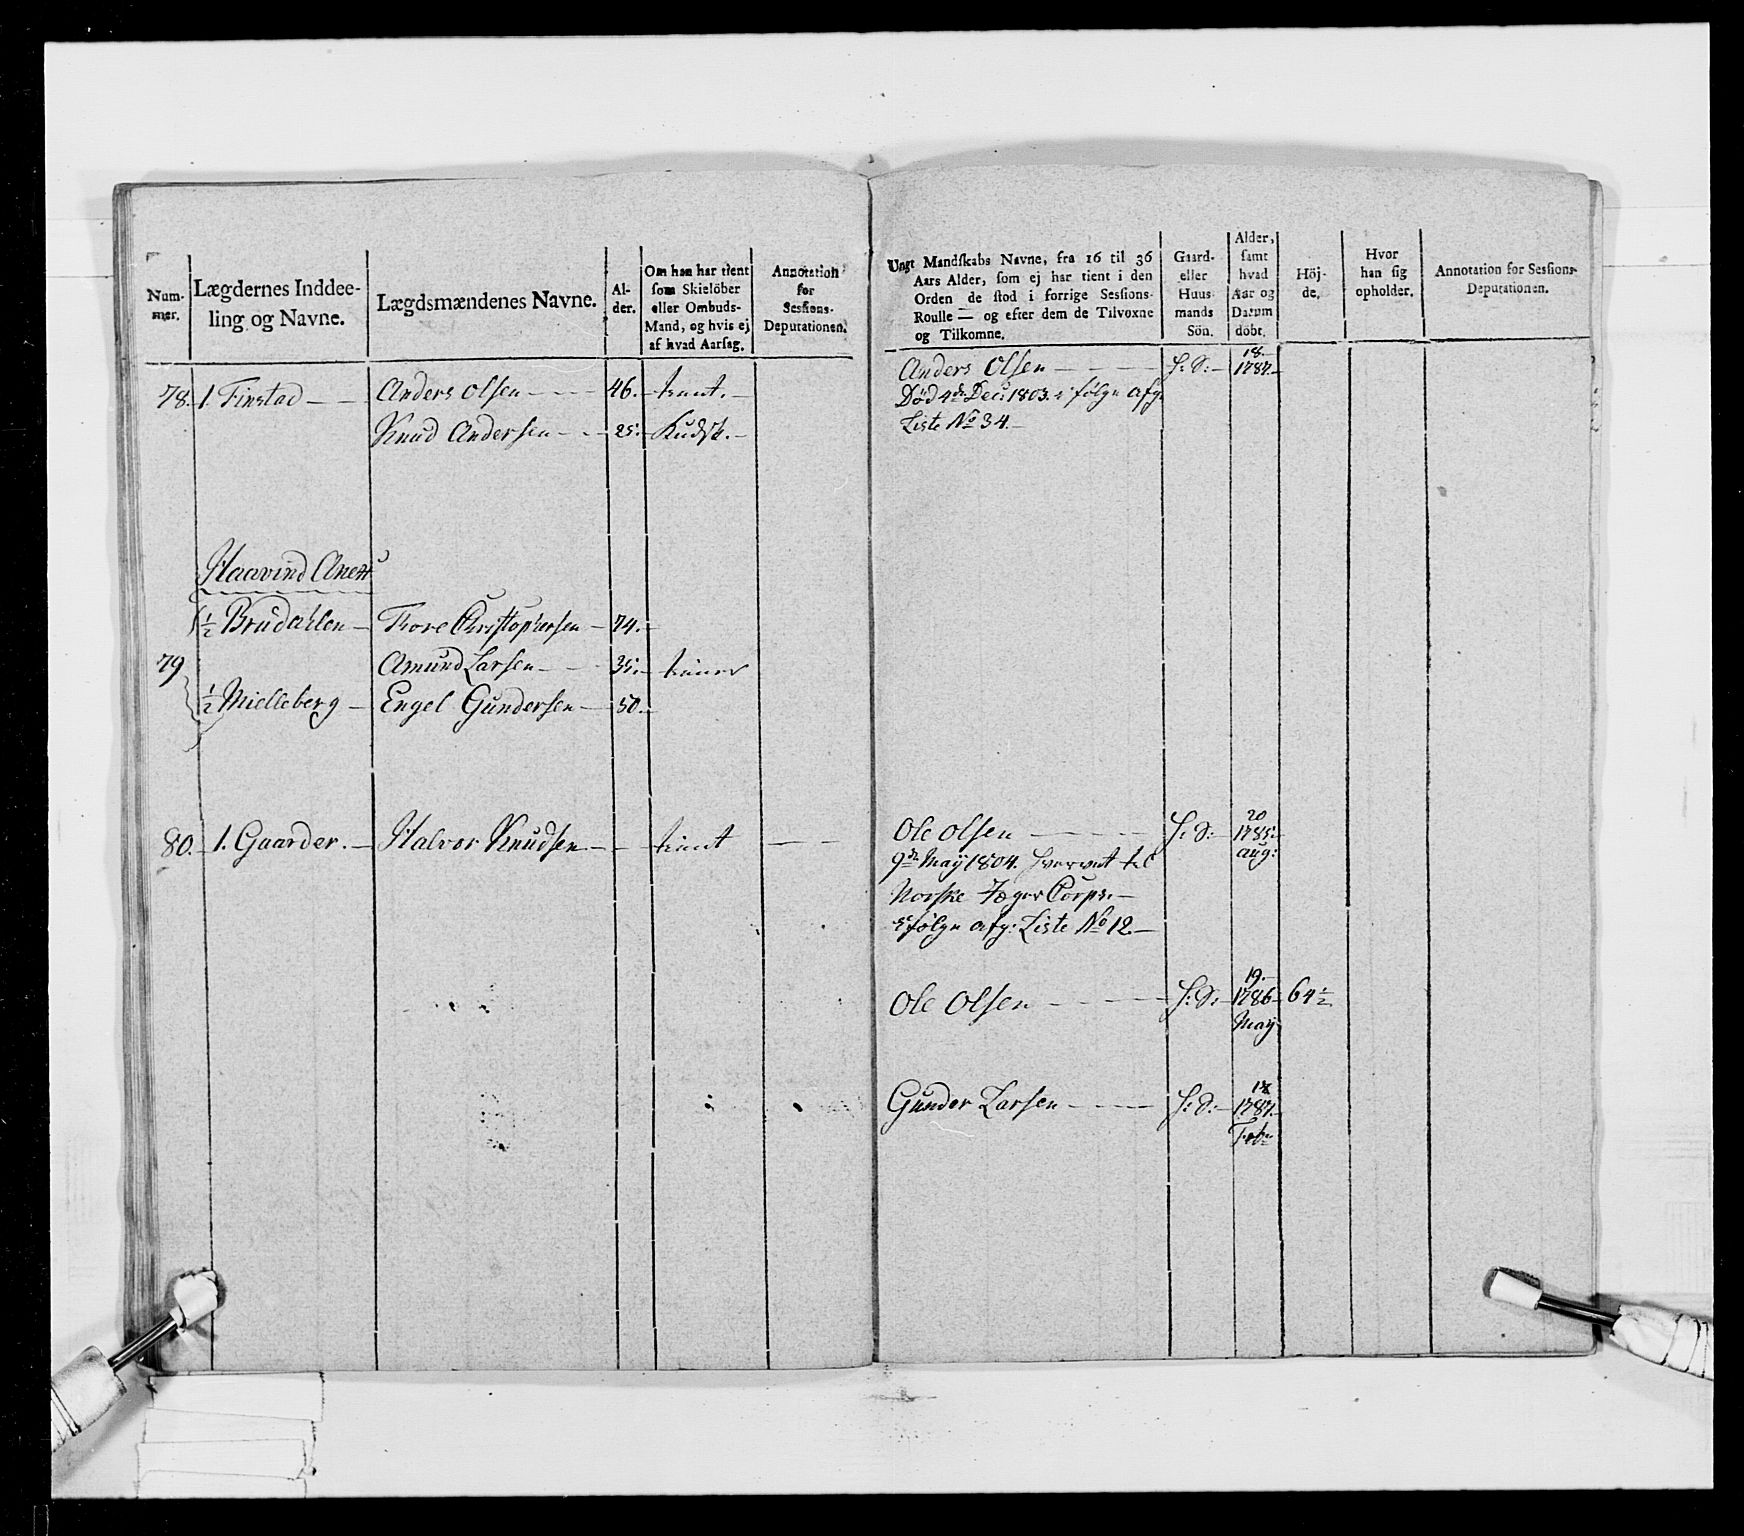 Num-
mer.
Lægdernes Inddee-
ling og Navne.
Lægdsmændenes Navne.
Al-
der.
Om han har tient
som Skielöber
eller Ombuds-
Mand, og hvis ej
af hvad Aarsag.
Annotation
for
Sessions-
Deputationen.
78. 1. Finstad - - Anders Olsen - - - 46. tient.
Knud Andersen - - 25. Kudsk.
Haavind Anex
½ Brudahlen - Tore Christophersen - 74.
79 Amund Larsen - - 35. tiener
½ Mielleberg - Engel Gundersen - 50.
80. 1. Gaarder. - Halvor Knudsen - - tient
Ungt Mandskabs Navne, fra 16 til 36
Aars Alder, som ej har tient i den
Orden de stod i forrige Sessions-
Roulle — og efter dem de Tilvoxne
og Tilkomne.
Gaard-
eller
Huus-
mands
Sön.
Alder,
samt
hvad
Aar og
Datum
döbt.
Höj-
de.
Hvor
han sig
opholder.
Annotation for Sessions-
Deputationen.
18.
Anders Olsen - - - H: S: - 1787.
Död 4de Dec: 1803. i fölge afg.
Liste No 34.
20
Ole Olsen - - - H: S: - 1785.
aug:
9de May 1804. hvervet til
Norske Jæger Corps.
i fölge afg: Liste No 12.
19.
Ole Olsen - - - H: S: - 1786 64½
May
18
Gunder Larsen - - - H: S: - 1787.
Feb: